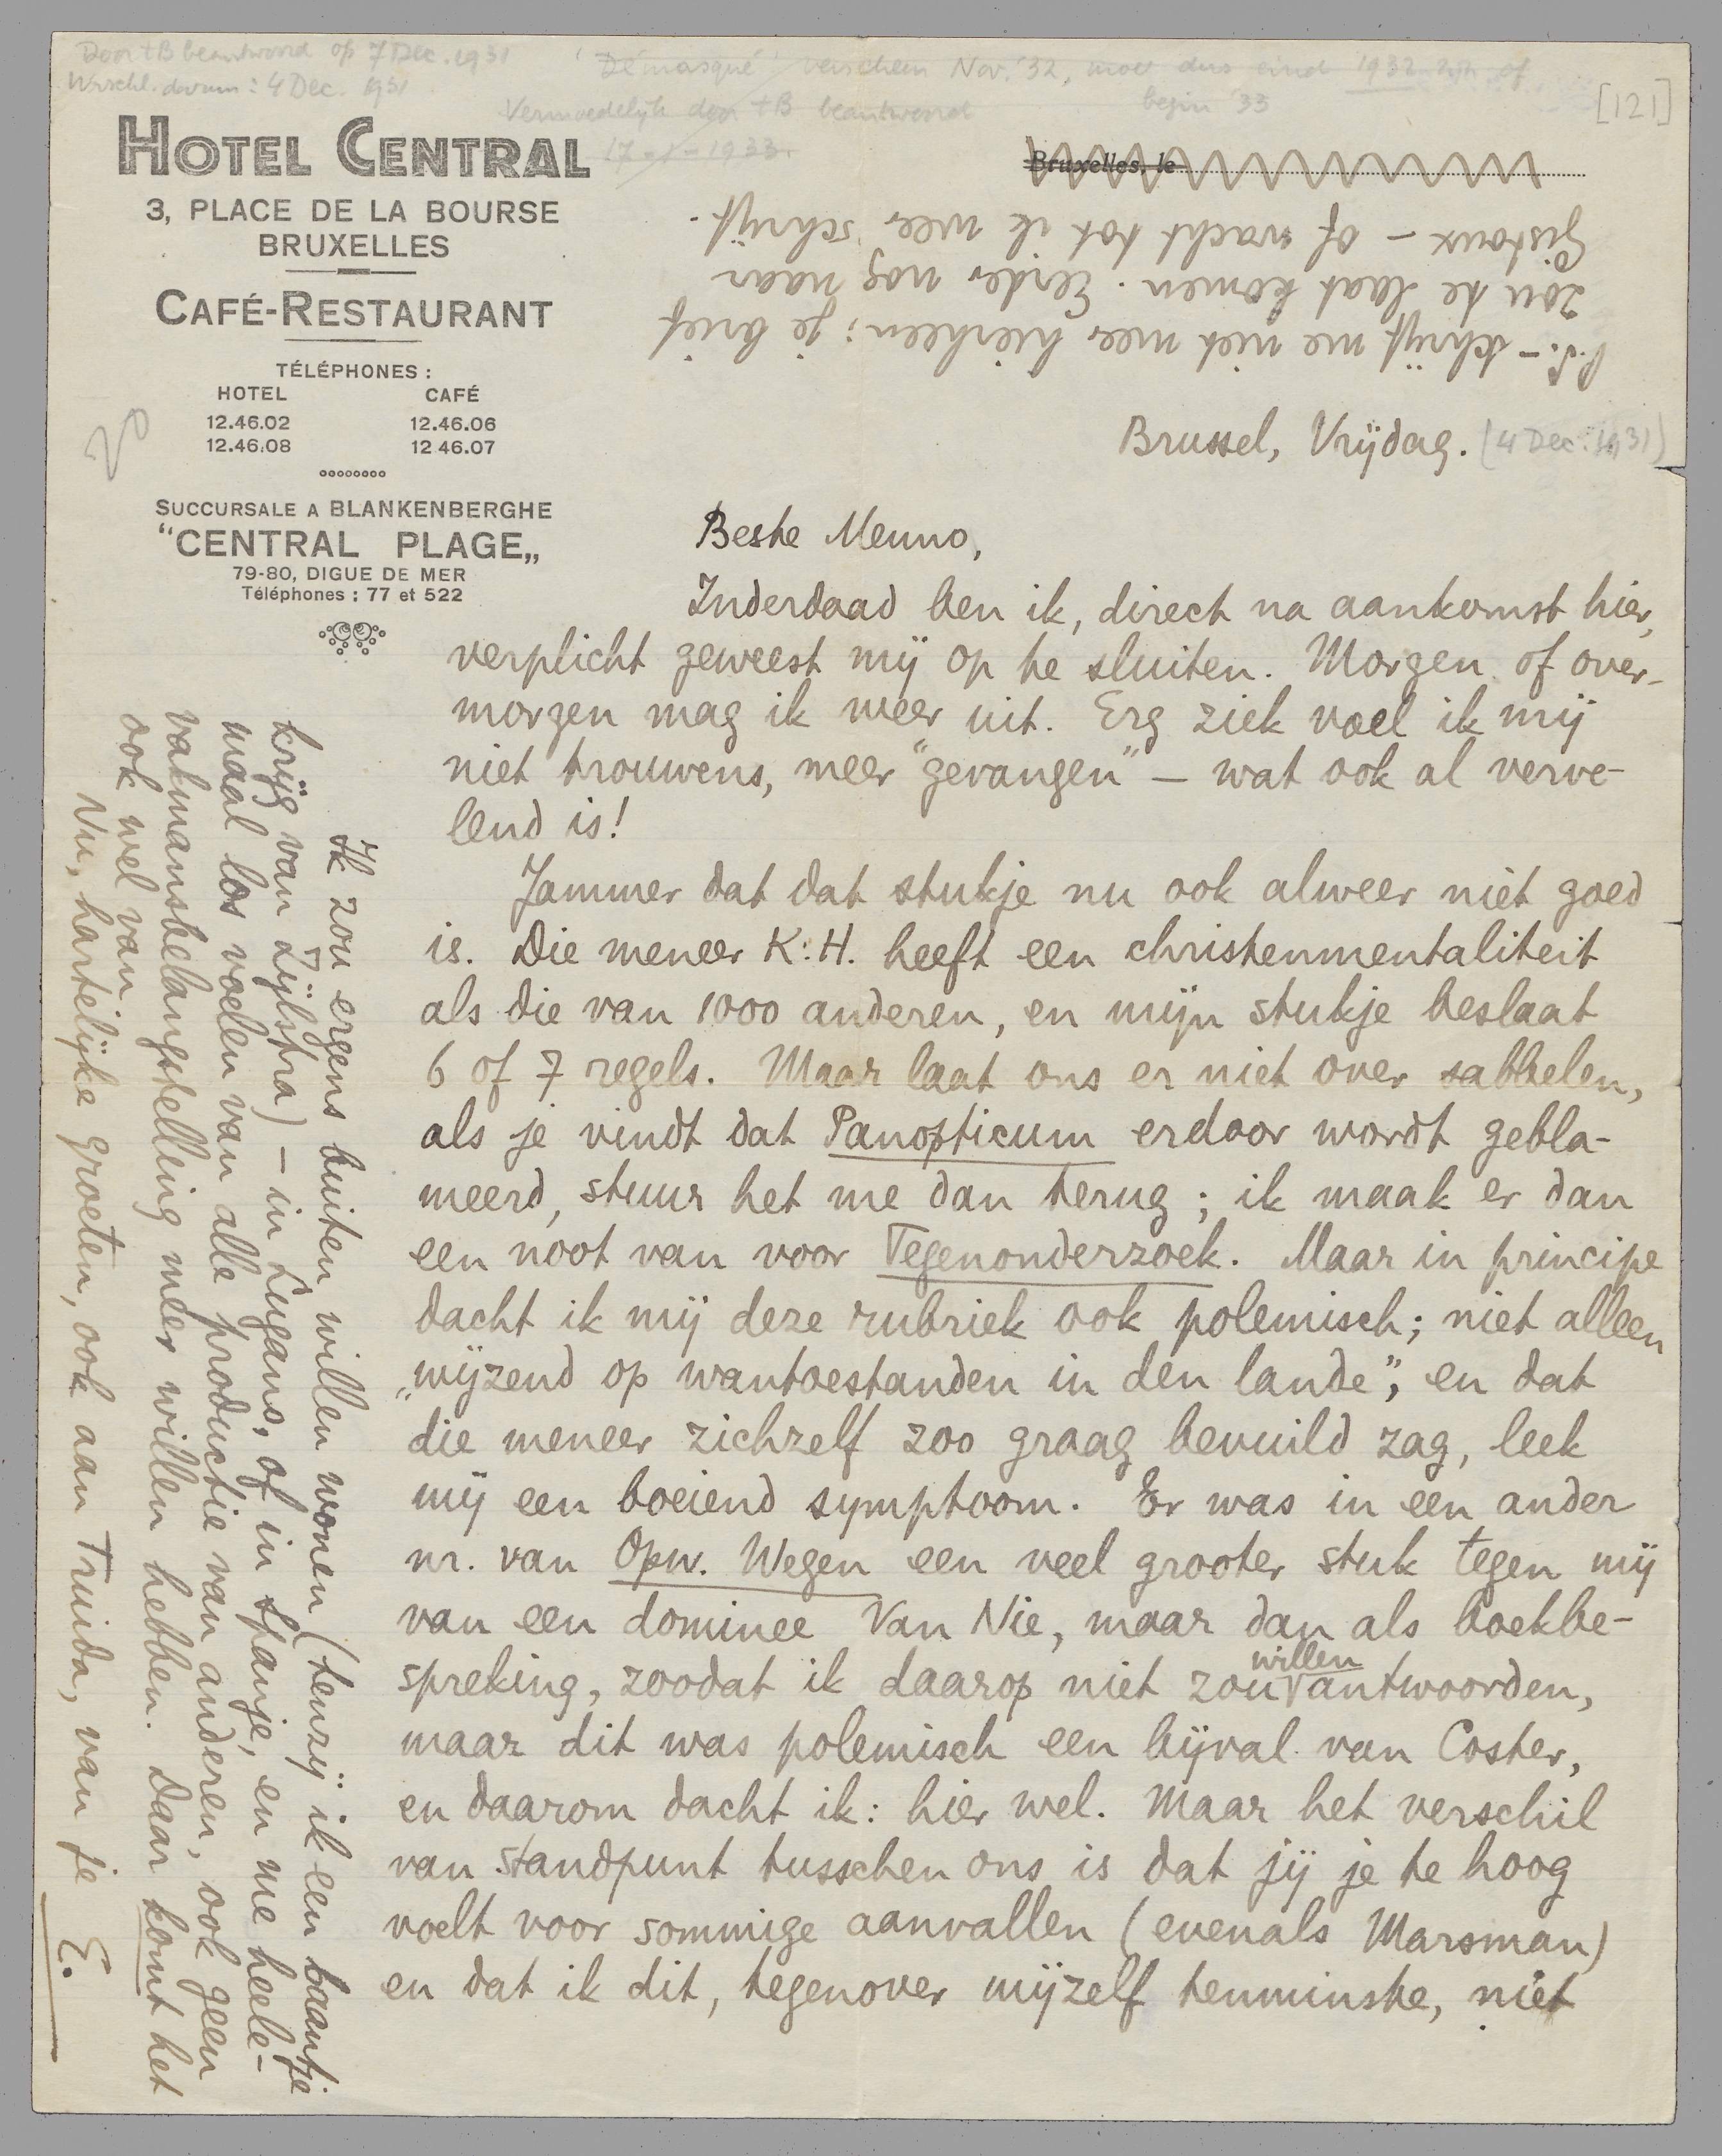 Door tB beantwoord op 7 Dec. 1931
Wrschl. datum: 4 Dec. 1931
'Démasqué' verscheen Nov. '32, moet dus eind 1932 zijn of
begin '33
Vermoedelijk door tB beantwoord
17-1-1933.
[121]
HOTEL CENTRAL
3, PLACE DE LA BOURSE
BRUXELLES
CAFÉ-RESTAURANT
TÉLÉPHONES :
HOTEL CAFÉ
12.46.02 12.46.06
12.46.08 12 46.07
SUCCURSALE A BLANKENBERGHE
"CENTRAL PLAGE„
79-80, DIGUE DE MER
Téléphones : 77 et 522
Bruxelles, le
P.S. – Schrijf me niet meer hierheen; je brief
zou te laat komen. Eerder nog naar
Gistoux – of wacht tot ik weer schrijf.
Brussel, Vrijdag. (4 Dec. 1931)
Beste Menno,
Inderdaad ben ik, direct na aankomst hier,
verplicht geweest mij op te sluiten. Morgen of over-
morgen mag ik weer uit. Erg ziek voel ik mij
niet trouwens, meer "gevangen" – wat ook al verve-
lend is!
Jammer dat dat stukje nu ook alweer niet goed
is. Die meneer K.H. heeft een christenmentaliteit
als die van 1000 anderen, en mijn stukje beslaat
6 of 7 regels. Maar laat ons er niet over sabbelen,
als je vindt dat Panopticum erdoor wordt gebla-
meerd, stuur het me dan terug; ik maak er dan
een noot van voor Tegenonderzoek. Maar in principe
dacht ik mij deze rubriek ook polemisch; niet alleen
„wijzend op wantoestanden in den lande”, en dat
die meneer zichzelf zoo graag bevuild zag, leek
mij een boeiend symptoom. Er was in een ander
nr. van Opw. Wegen een veel grooter stuk tegen mij
van een dominee Van Nie, maar dan als boekbe-
spreking, zoodat ik daarop niet zou willen antwoorden,
maar dit was polemisch een bijval van Coster,
en daarom dacht ik: hier wel. Maar het verschil
van standpunt tusschen ons is dat jij je te hoog
voelt voor sommige aanvallen (evenals Marsman)
en dat ik dit, tegenover mijzelf tenminste, niet
Ik zou ergens buiten willen wonen (tenzij ik een baantje
krijg van Zijlstra) – in Lugano, of in Spanje, en me heele-
maal los voelen van alle productie van anderen, ook geen
vakmansbelangstelling meer willen hebben. Daar komt het
ook wel van.
Nu, hartelijke groeten, ook aan Truida, van je
E.